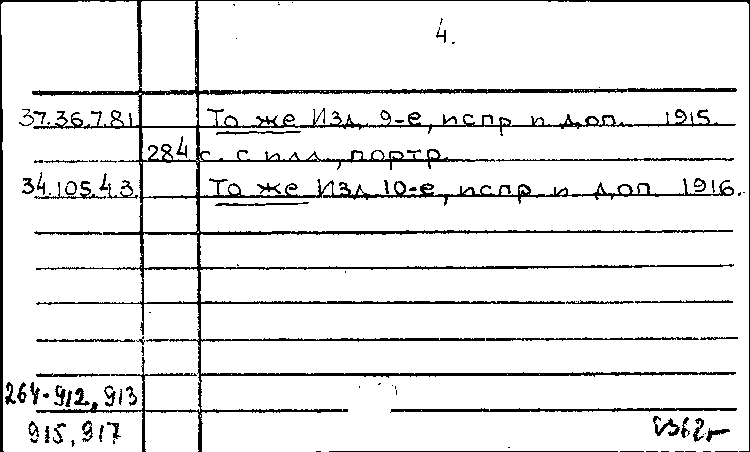 4.
37.36.7.81 То же Изд. 9-е, испр и доп. 1915.
284 с. с илл., портр.
34.105.4.3. То же Изд. 10-е, испр и доп 1916.
264-912, 913
915, 917